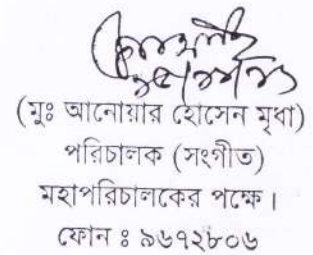 (মুঃ আনোয়ার হোসেন মৃধা)
পরিচালক (সংগীত)
মহাপরিচালকের পক্ষে।
ফোন ঃ ৯৬৭২৮০৬